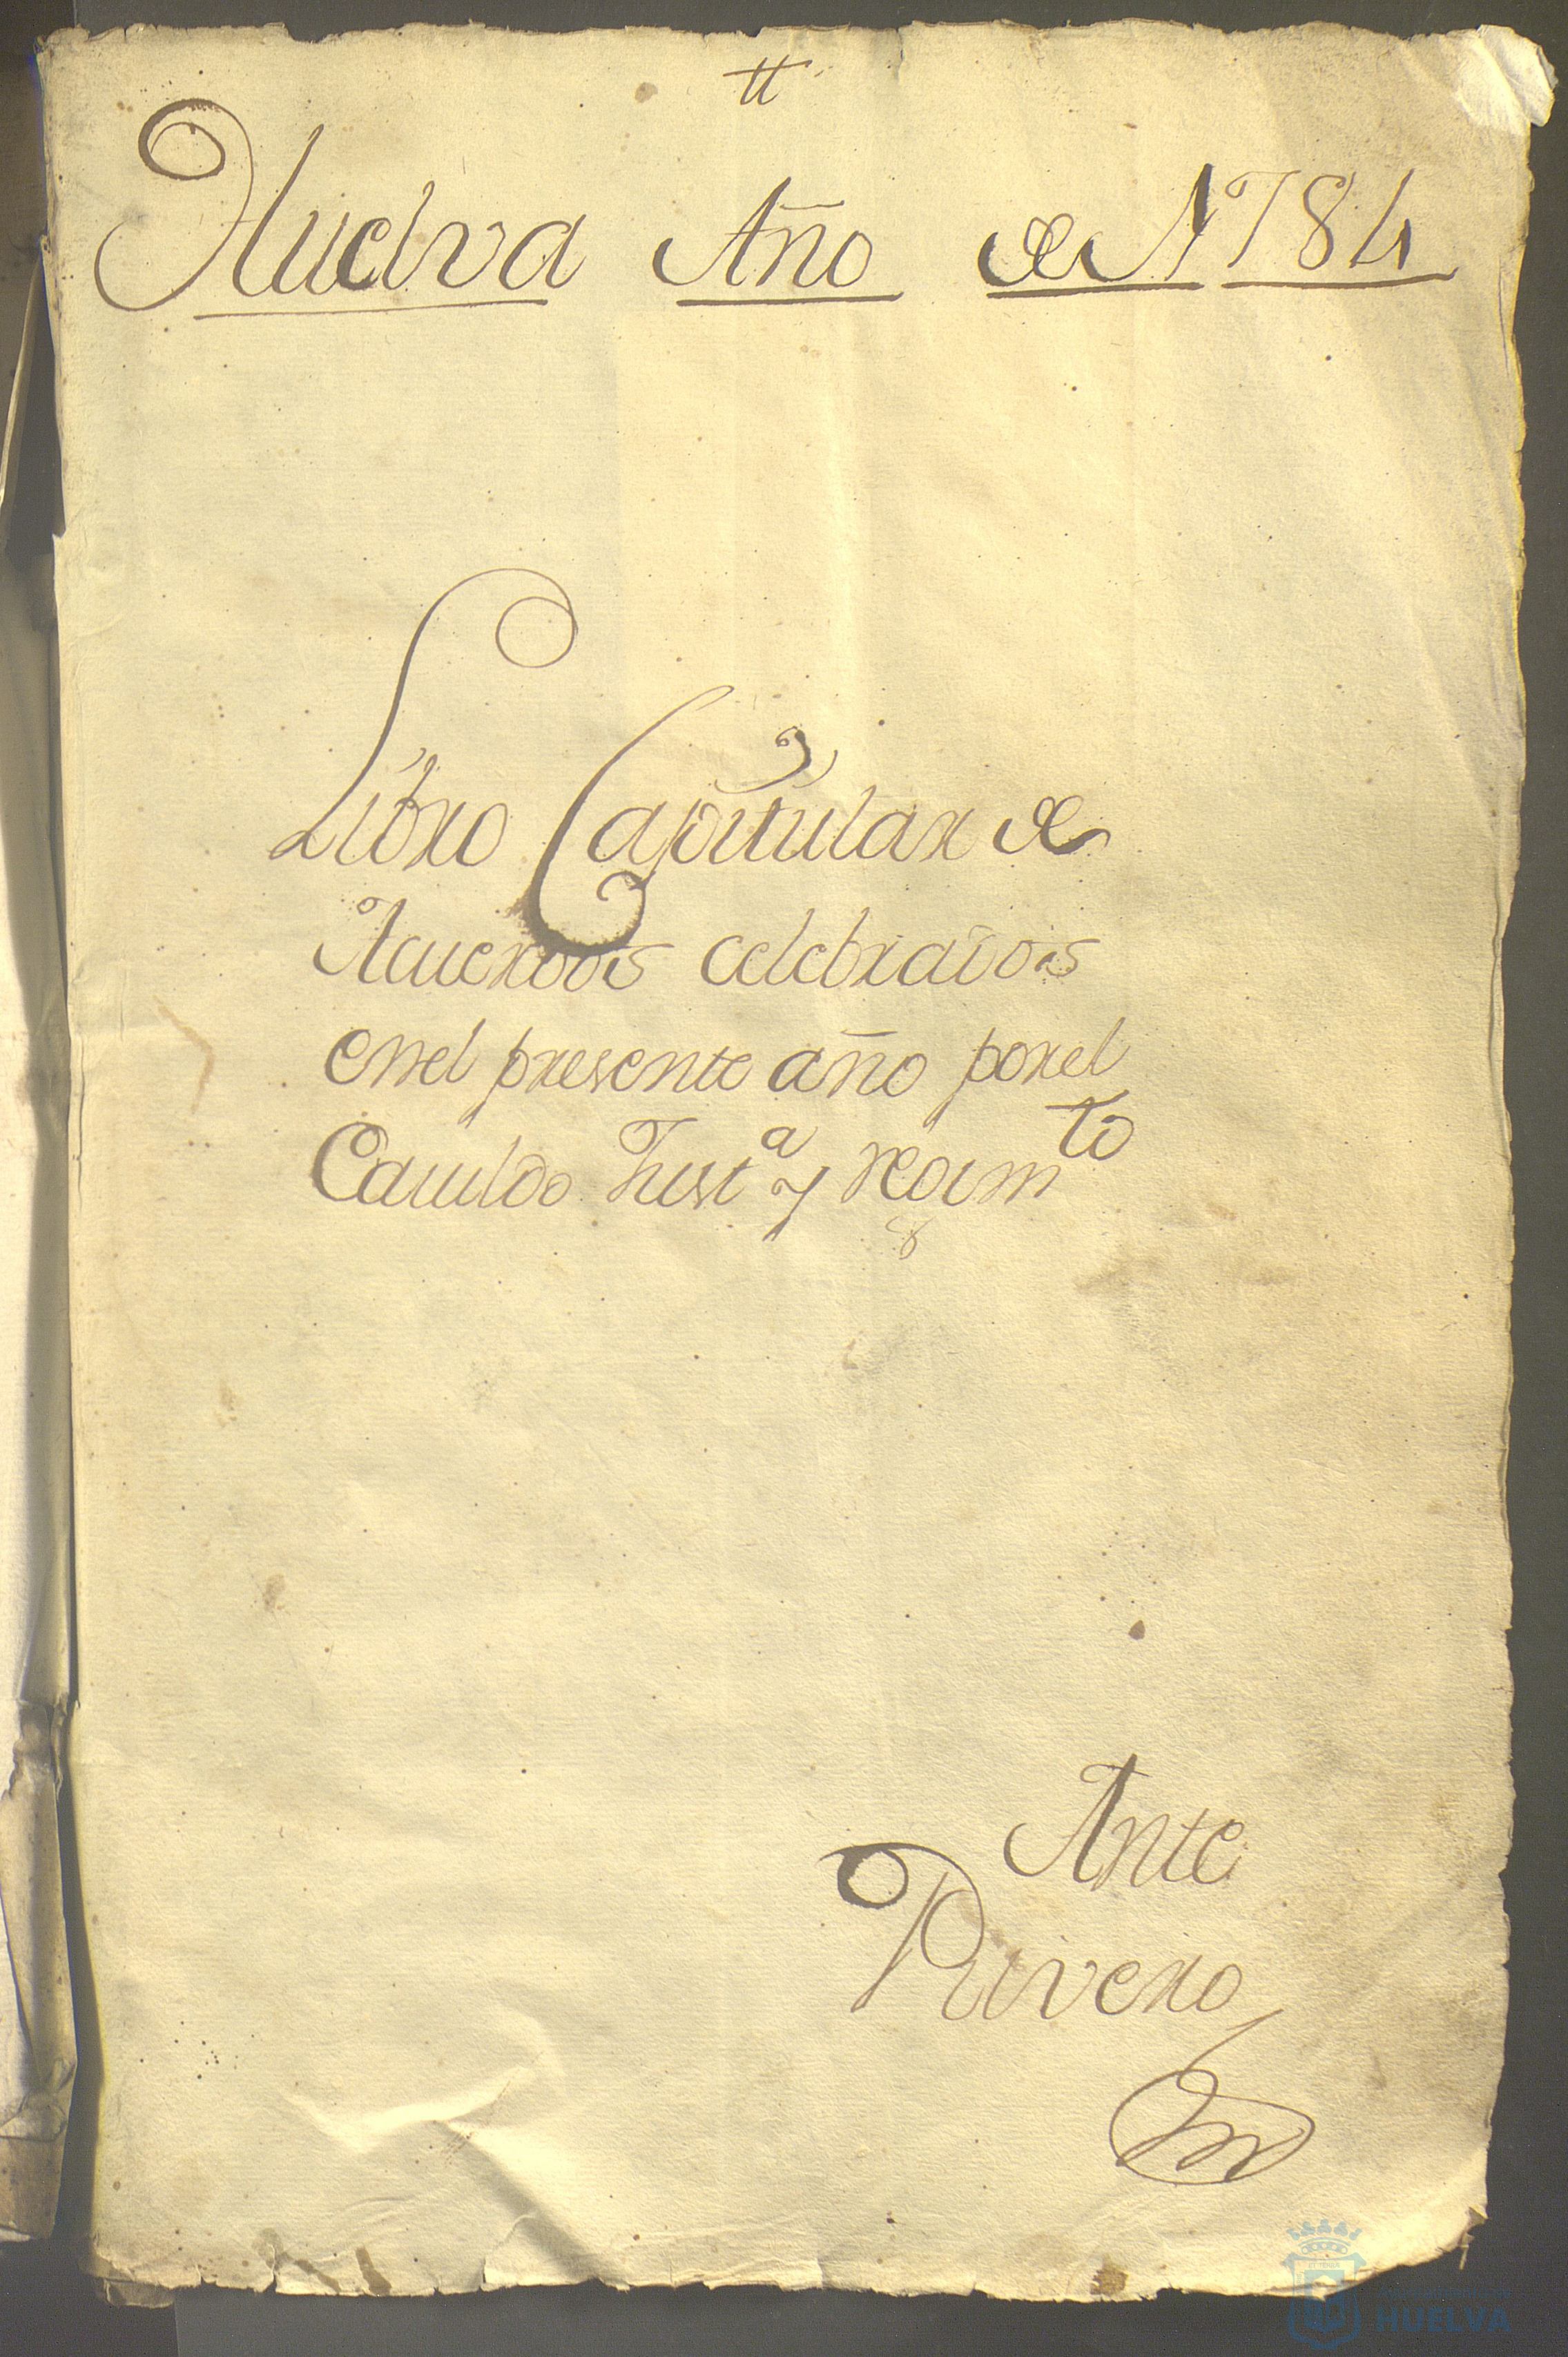 tt
Huelva Año de 1784
Libro Capitular de
Acuerdos celebrados
enel presente año porel
Cauildo Just.ª y regim.to
Ante
Rivero
HUELVA